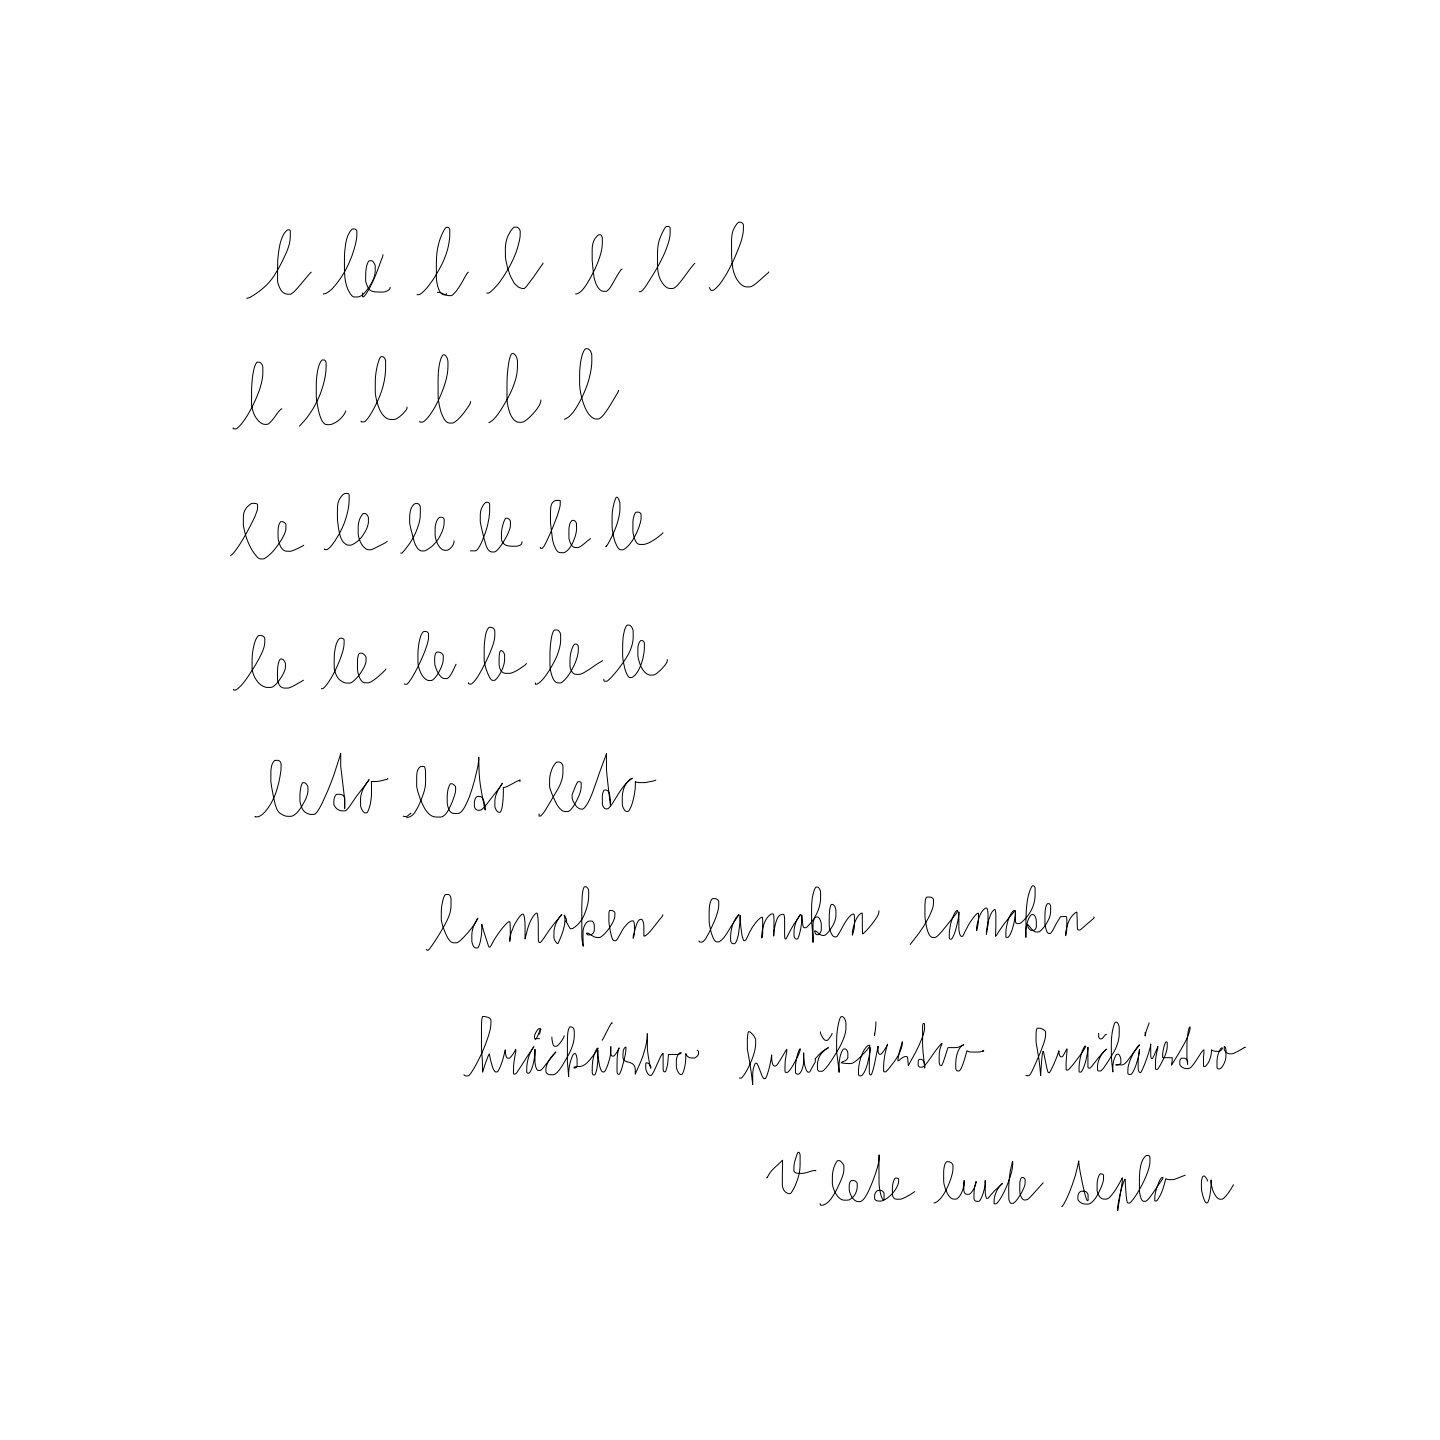 l le l l l l l
l l l l l l
le le le le le le
le le le le le le
leto leto leto
lamoken lamoken lamoken
hračkárstvo hračkárstvo hračkárstvo
V lete bude teplo a